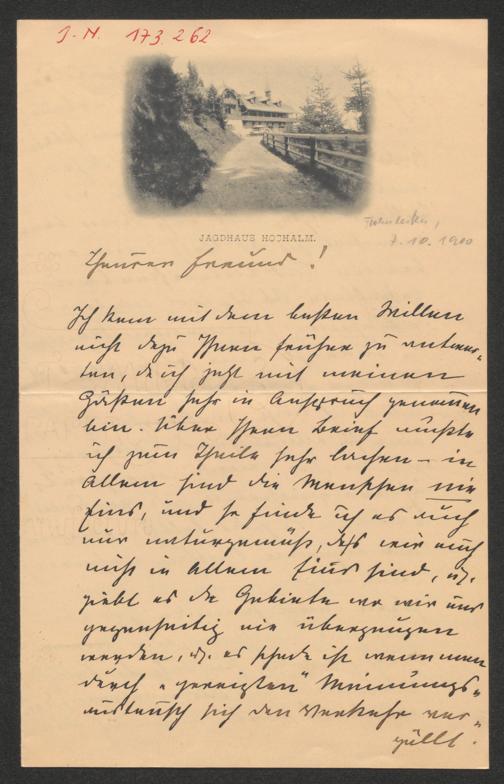 J. N. 173.262
JAGDHAUS HOCHALM.
7. 10. 1900
Theurer Freund!
Ich kam mit dem besten Willen
nicht dazu Ihnen früher zu antwor-
ten, da ich jetzt mit meinen
Gästen sehr in Anspruch genommen
bin. Über Ihren Brief mußte
ich zum Theile sehr lachen – in
Allem sind die Menschen nie
Eins, und so finde ich es auch
nur naturgemäß, daß wir auch
nicht in Allem Eins sind,
giebt es da Gebiete wo wir uns
gegenseitig nie überzeugen
werden, es schade ist wenn man
durch „gereizten" Meinungs-
austausch sich den Verkehr ver-
gällt.